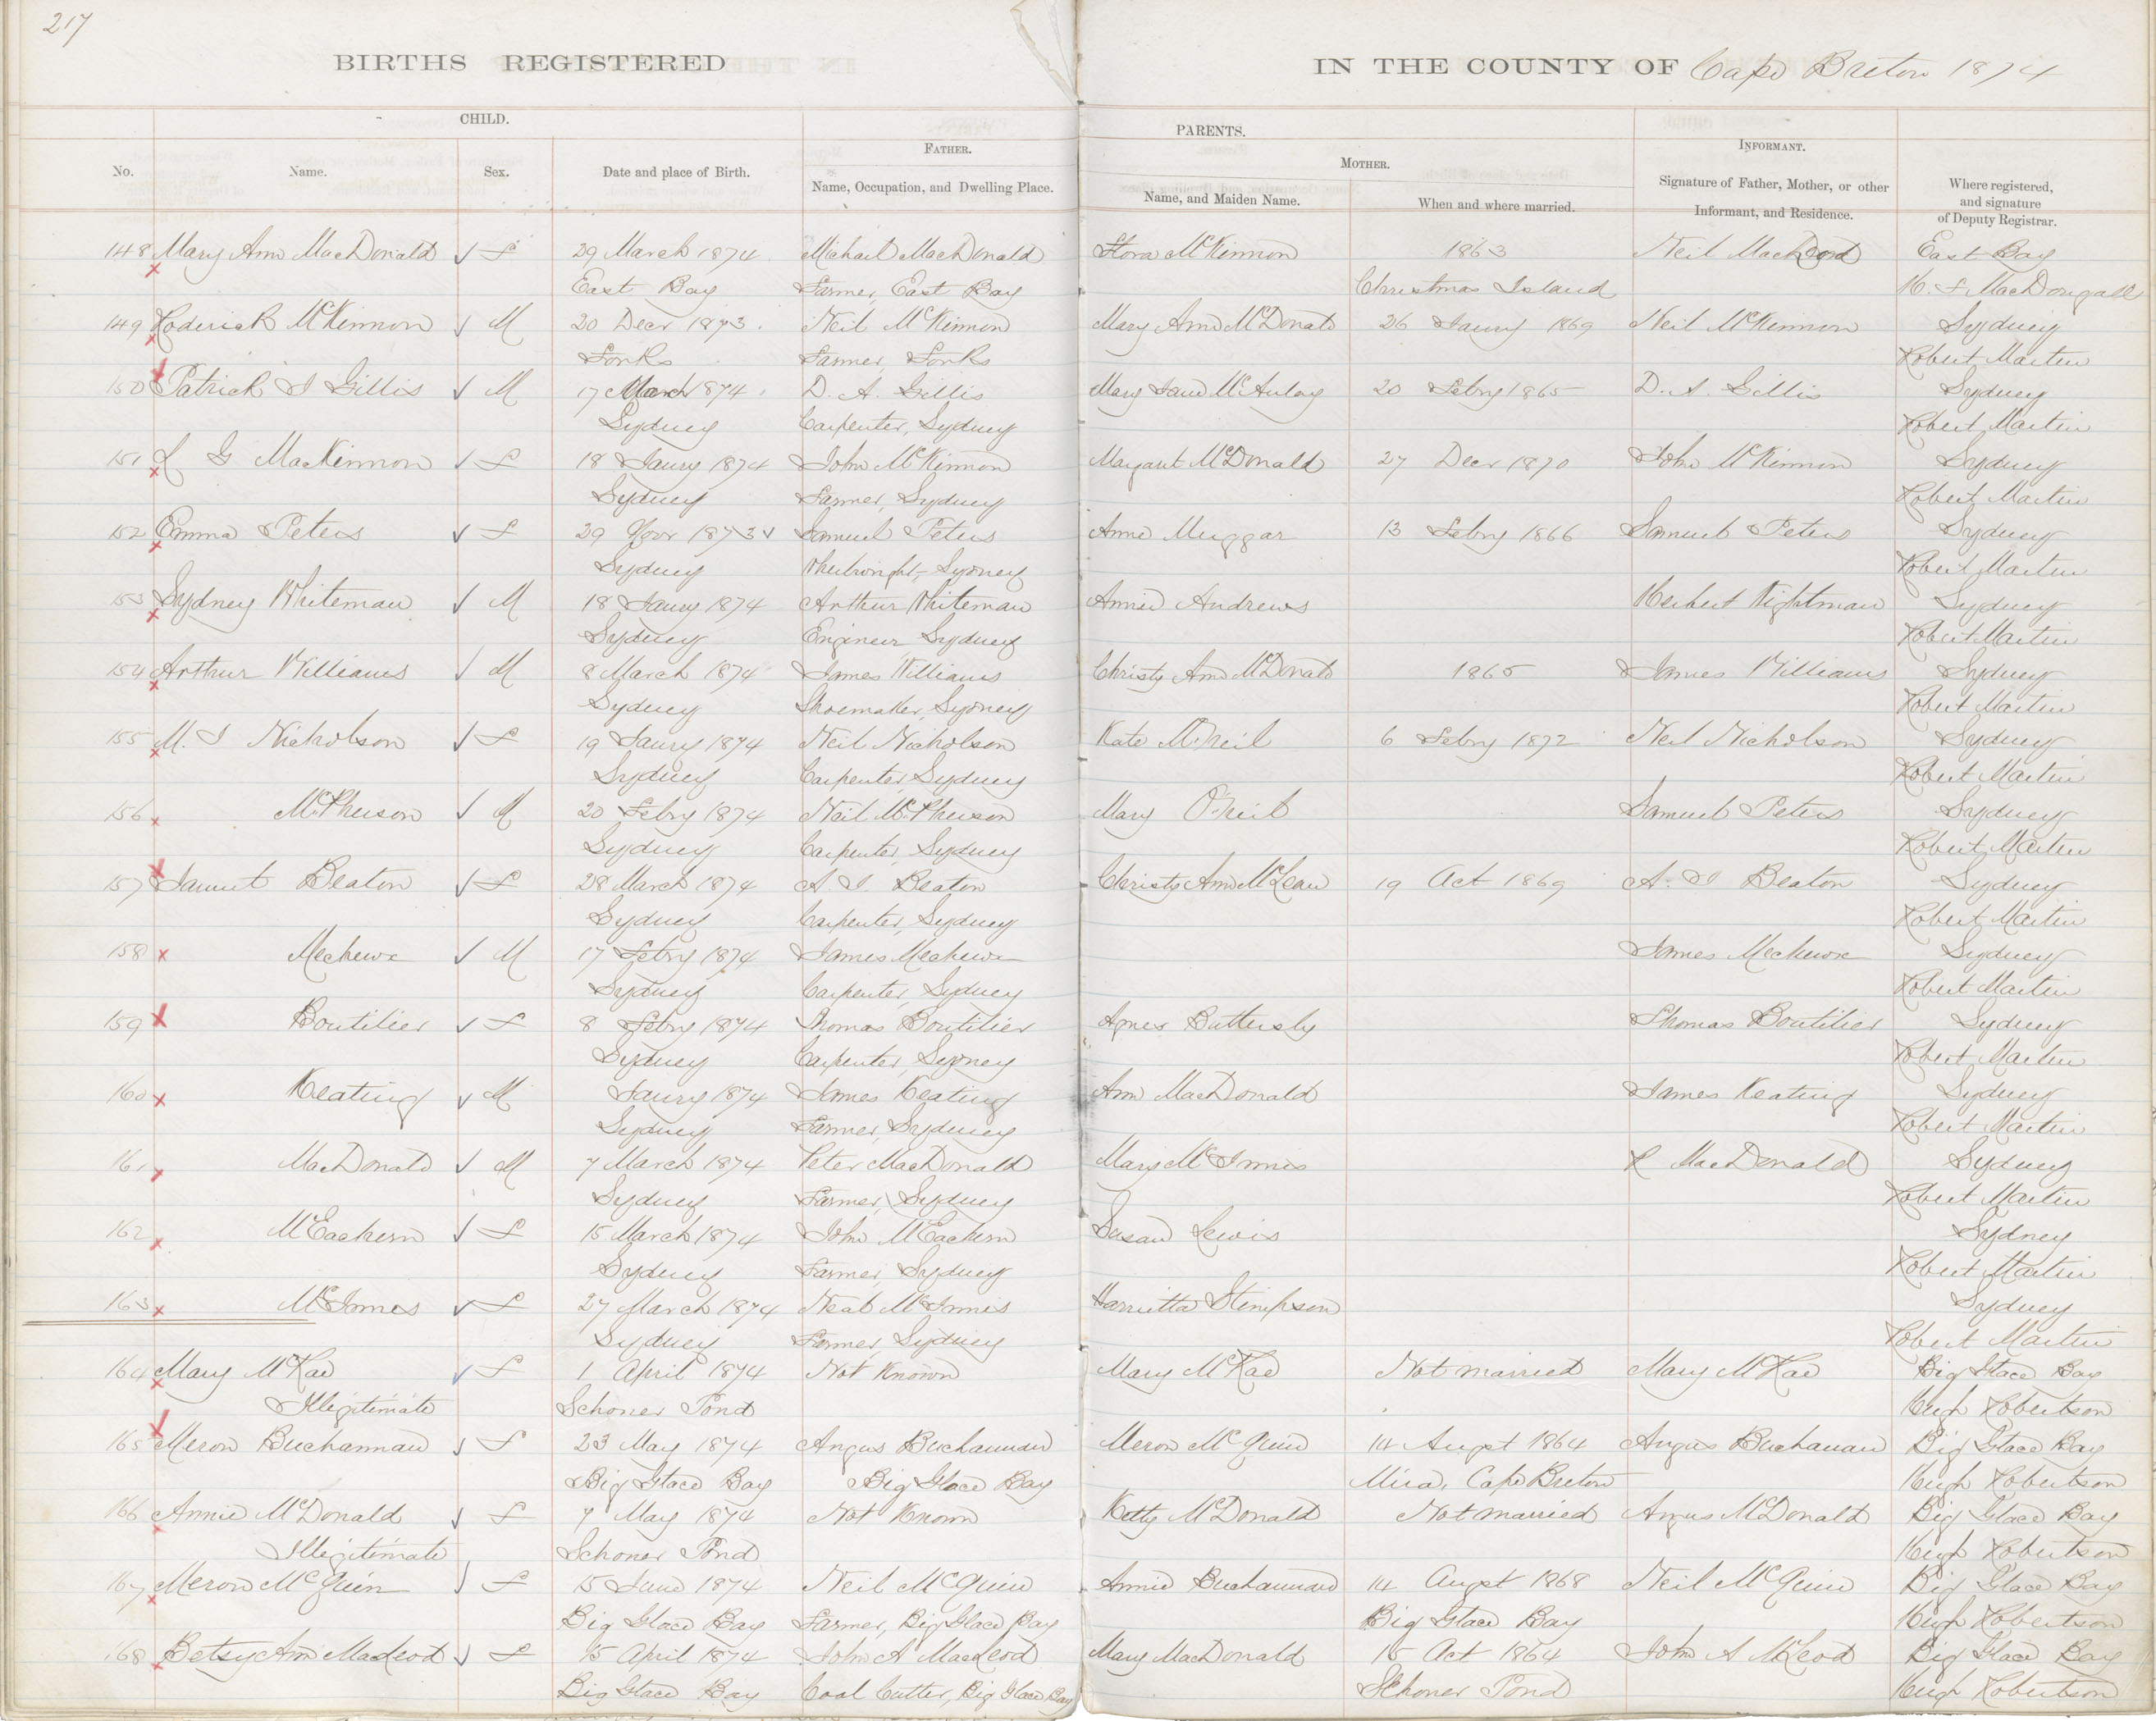 217
BIRTHS REGISTERED IN THE COUNTY OF Cape Breton 1874
CHILD. PARENTS.
FATHER. MOTHER. INFORMANT.
No. Name. Sex. Date and place of Birth. Name, Occupation, and Dwelling Place. Name, and Maiden Name. When and where married. Signature of Father, Mother, or other Informant, and Residence. Where registered, and signature of Deputy Registrar.
148 Mary Ann MacDonald f 29 March 1874 Michael MacDonald Flora McKinnon 1863 Neil East Bay
East Bay Farmer, East Bay Christmas Island MacDougall
149 Roderick McKinnon M 20 Decr 1873 Neil McKinnon Mary Ann McDonald 26 Jaury 1869 Neil McKinnon Sydney
Forks Farmer, Forks Robert Martin
150 Patrick J Gillis M 17 March 1874 D. A. Gillis Mary Jane McAulay 20 Febry 1865 D. A. Gillis Sydney
Sydney Carpenter, Sydney Robert Martin
151 L G MacKinnon f 18 Jaury 1874 John McKinnon Margaret McDonald 27 Decr 1870 John McKinnon Sydney
Sydney Farmer, Sydney Robert Martin
152 Emma Peters f 29 Novr 1873 Samuel Peters Anne Muggar 13 Febry 1866 Samuel Peters Sydney
Sydney Wheelwright, Sydney Robert Martin
153 Sydney Whiteman M 18 Jaury 1874 Arthur Whiteman Annie Andrews Herbert Wightman Sydney
Sydney Engineer Sydney Robert Martin
154 Arthur Williams M 8 March 1874 James Williams Christy Ann McDonald 1865 James Williams Sydney
Sydney Shoemaker, Sydney Robert Martin
155 M. J Nicholson f 19 Jaury 1874 Neil Nicholson Kate McNeil 6 Febry 1872 Neil Nicholson Sydney
Sydney Carpenter, Sydney Robert Martin
156 McPherson M 20 Febry 1874 Neil McPherson Mary O'Neil Samuel Peters Sydney
Sydney Carpenter, Sydney Robert Martin
157 Beaton f 28 March 1874 A. J. Beaton Christy Ann McLean 19 Oct 1869 A. J Beaton Sydney
Sydney Carpenter, Sydney Robert Martin
158 M 17 Febry 1874 James James Sydney
Sydney Carpenter, Sydney Robert Martin
159 Boutilier f 8 Febry 1874 Thomas Boutilier Agnes Buttersby Thomas Boutilier Sydney
Sydney Carpenter, Sydney Robert Martin
160 Keating M Jaury 1874 James Keating Ann MacDonald James Keating Sydney
Sydney Farmer, Sydney Robert Martin
161 MacDonald M 7 March 1874 Peter MacDonald Mary McInnis MacDonald Sydney
Sydney Farmer, Sydney Robert Martin
162 McEachern f 15 March 1874 John McEachern Susan Lewis Sydney
Sydney Farmer, Sydney Robert Martin
163 McInnes f 27 March 1874 Neal McInnis Harrietta Stimpson Sydney
Sydney Farmer, Sydney Robert Martin
164 Mary McRae f 1 April 1874 Not Known Mary McRae Not married Mary McRae Big Glace Bay
Illegitimate Schoner Pond Hugh Robertson
165 Meron Buchannan f 23 May 1874 Angus Buchannan Meron McQuin 14 Augst 1864 Angus Buchanan Big Glace Bay
Big Glace Bay Big Glace Bay Mira, Cape Breton Hugh Robertson
166 Annie McDonald f 7 May 1874 Not Known Ketty McDonald Not married Angus McDonald Big Glace Bay
Illegitimate Schoner Pond Hugh Robertson
167 Meron McQuin f 15 June 1874 Neil McQuin Annie Buchannan 14 Augst 1868 Neil McQuin Big Glace Bay
Big Glace Bay Farmer, Big Glace Bay Big Glace Bay Hugh Robertson
168 Betsy Ann MacLeod f 15 April 1874 John A MacLeod Mary MacDonald 15 Oct 1864 John A McLeod Big Glace Bay
Big Glace Bay Coal Cutter, Big Glace Bay Schoner Pond Hugh Robertson